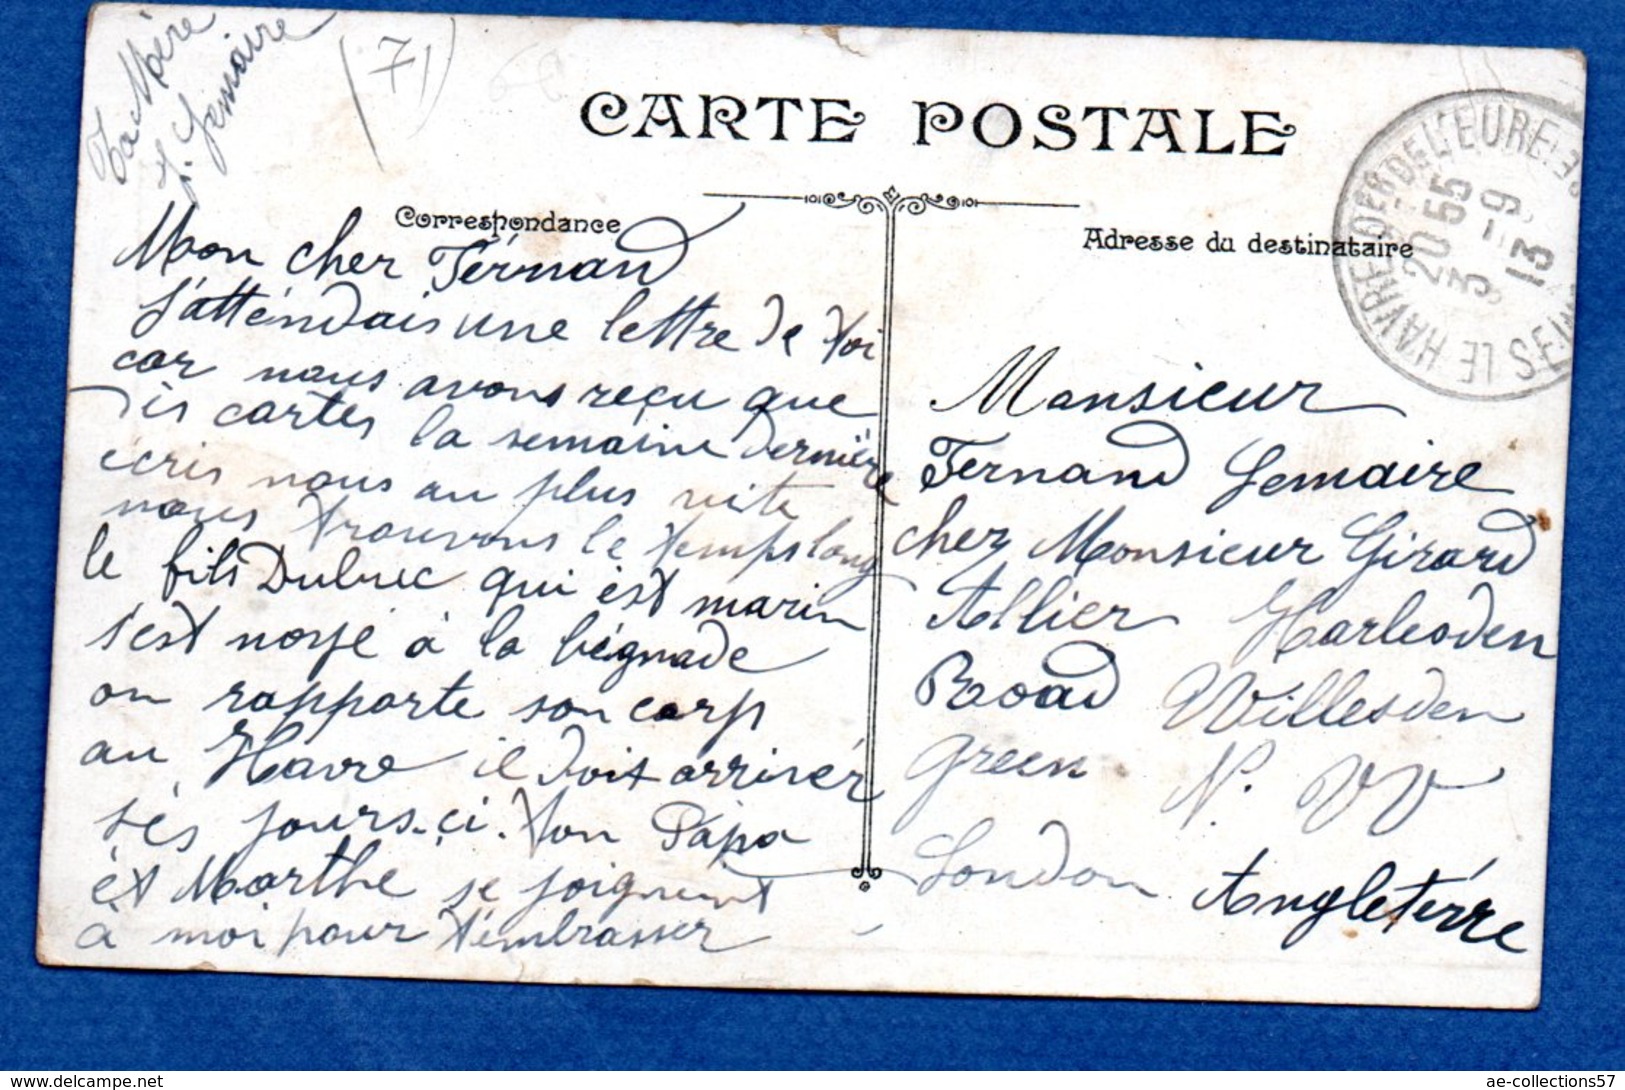 Ta Mère
L. Lemaire
(71)
CARTE POSTALE
Correspondance
Adresse du destinataire
LE HAVRE
DE L'EURE
20 55
3 - 9
13
Mon cher Férnand
J'atténdais une lettre de toi
car nous avons reçu que
dis cartes la semaine dernière
écris nous au plus vite
nous trouvons le temps long
le fils Dubuec qui ést marin
s'est noyé à la béignade
on rapporte son corps
au Havre il doit arrivér
sés jours-ci. ton Papa
ét Marthe se joignent
à moi pour t'émbrasser
Monsieur
Fernand Lemaire
chez Monsieur Girard
Allier Harlesden
Road Willesden
Green N. W
London Angletérre
ae-collections57